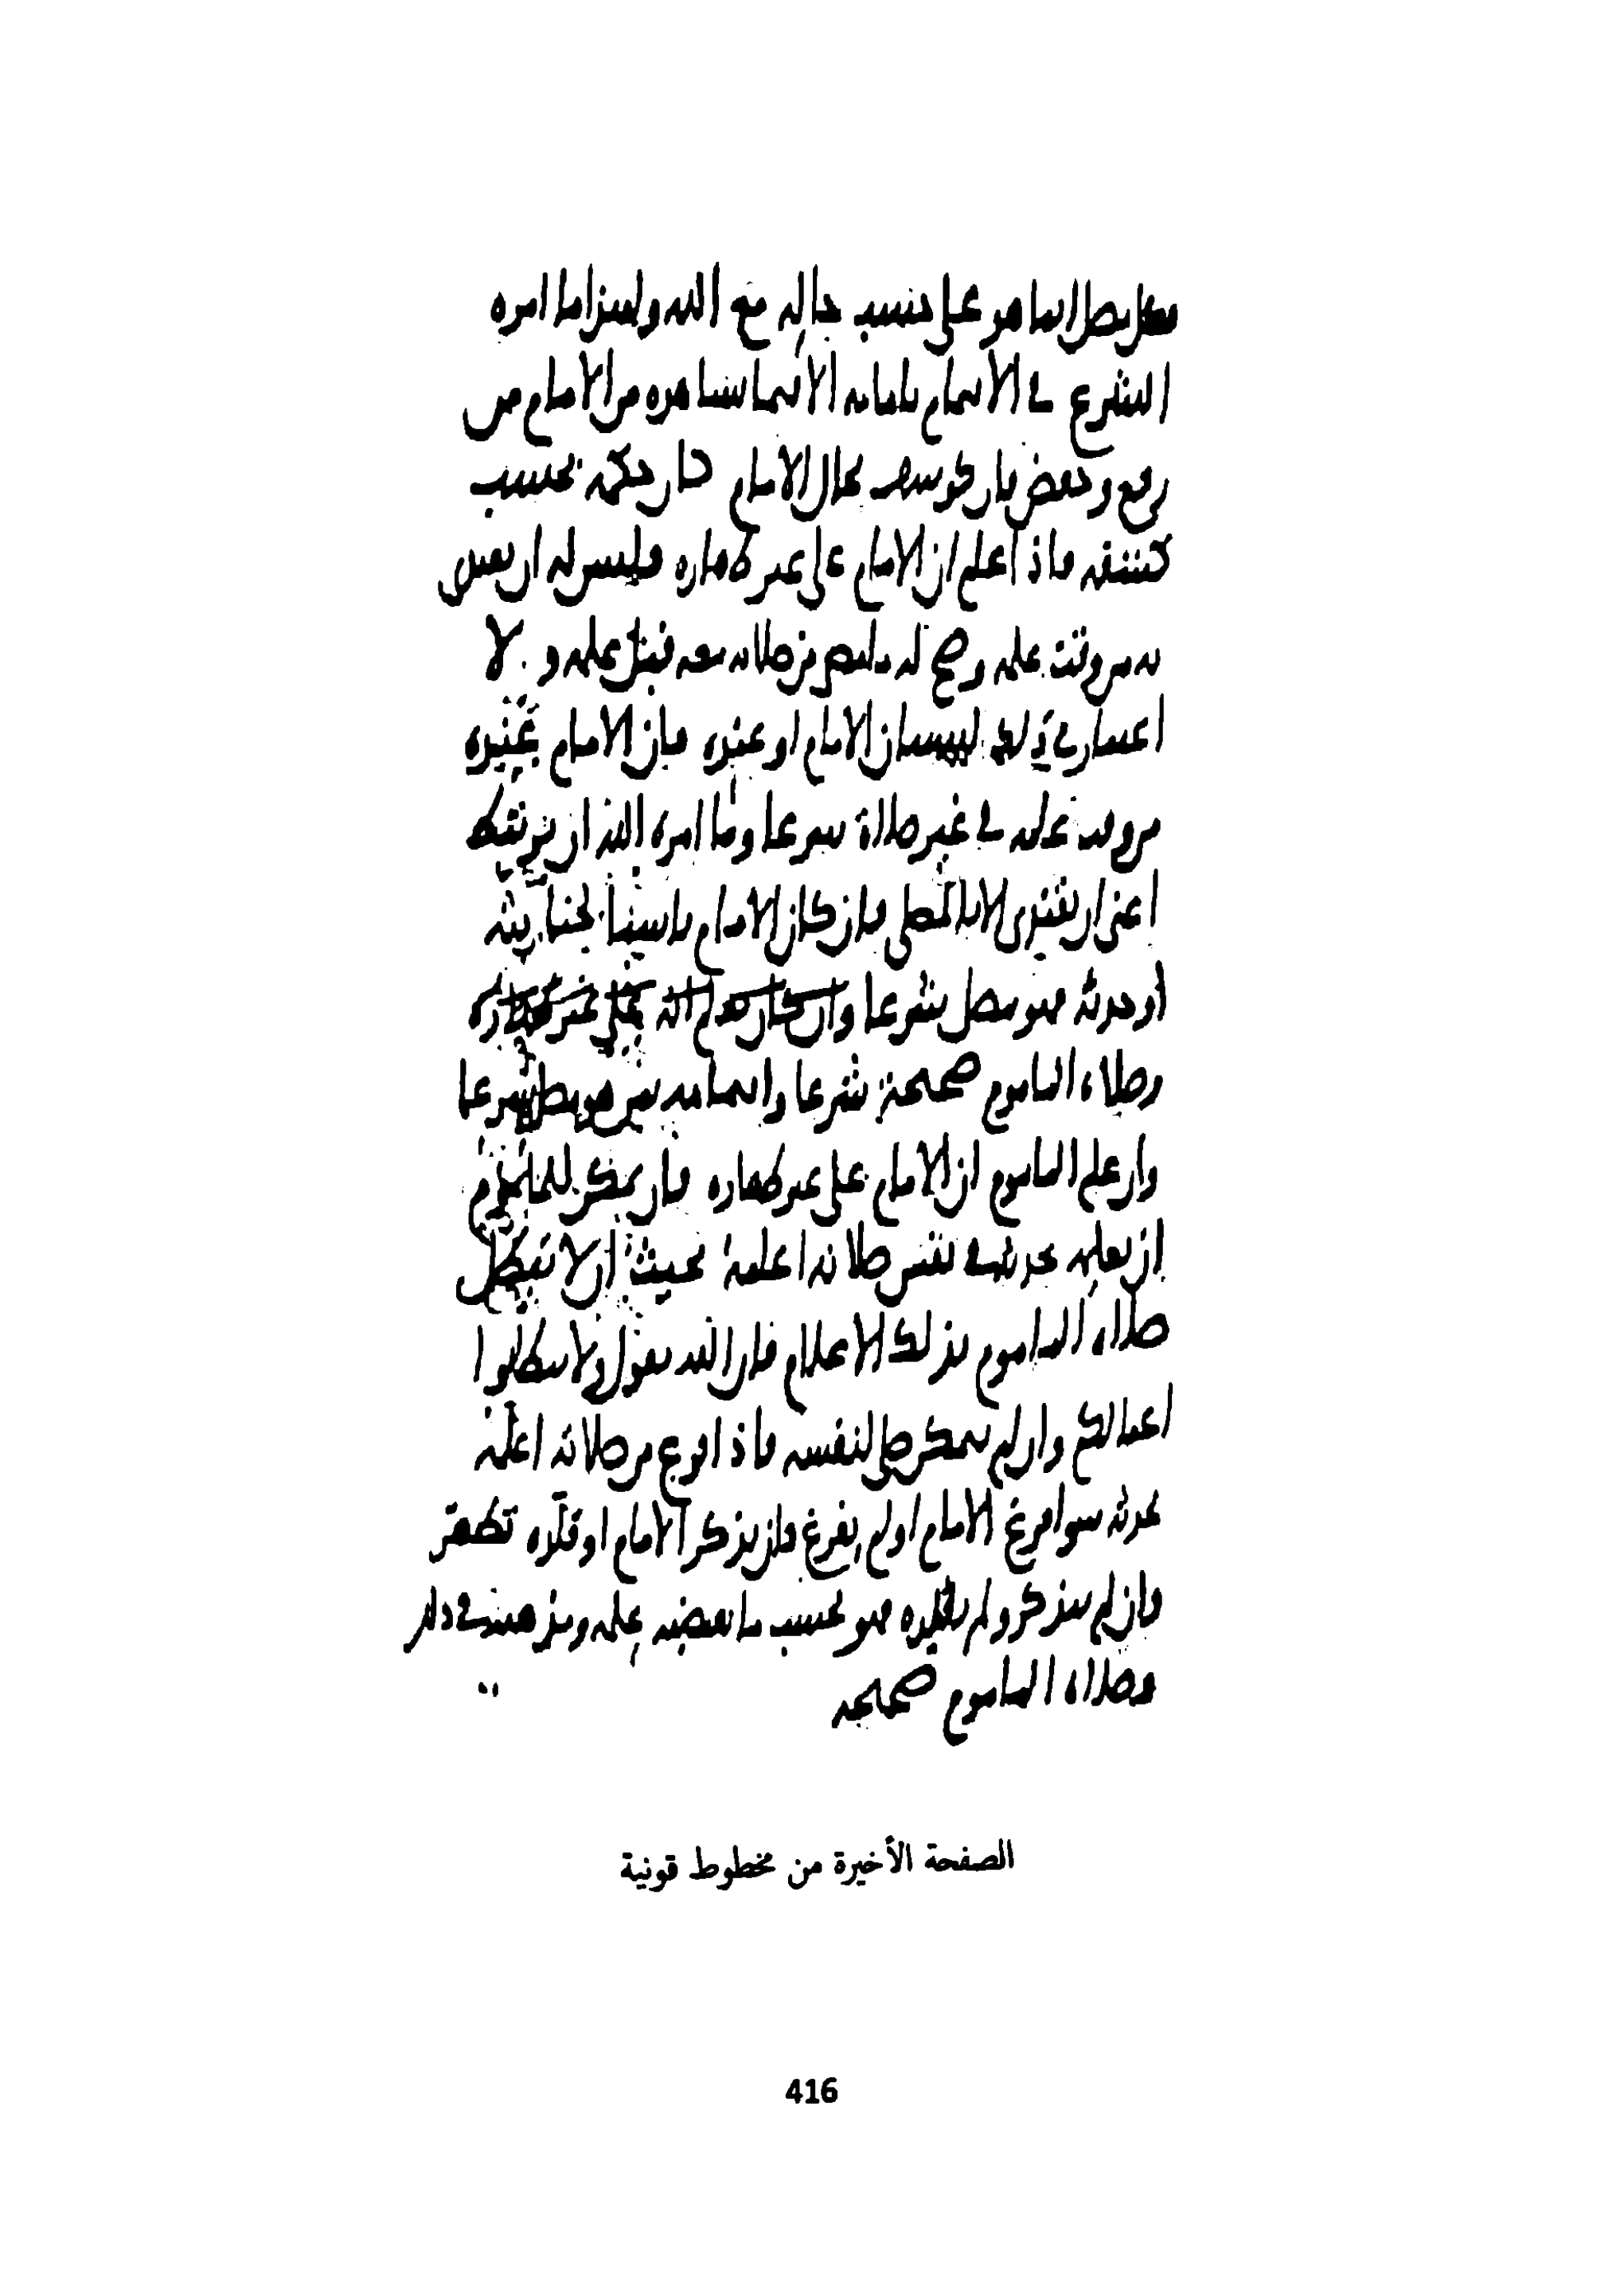 فكل مصل انما هو على حسب حاله مع الله ولهذا ما امره
الشرع في الائتمام بامامه الا فيما يشاهده من الامام من
رفع وخفض فان كوشف بحال الامام كان حكمه بحسب
كشفه فاذا علم ان الامام على غير طهاره فليس له ان يقتدى
به من وقت علمه وصح له ما مضى من صلاته معه قبل علمه ولا
اعتبار في ذلك لنسيان الامام او عمده فان الامام عنده
من وقت علمه في غير صلاة شرعا وما امره الله ان يرتبط
اعنى ان يقتدى الا بالمصلى فان كان الامام ناسيا لجنابته
او حدثه فهو مصل شرعا
وصلاه الماموم صحيحة شرعا وائتمامه بمن هو مصل شرعا
وان علم الماموم ان الامام على غير طهاره فان يمكن للماموم
ان يعلمه بحدثه في نفس صلاته اعلمه بحيث ان لا تبطل
صلاه الماموم بذلك الاعلام فان الله يقول ولا تبطلوا
اعمالكم وان لم يتمكن صلى لنفسه فاذا فرغ من صلاته اعلمه
بحدثه سوا فرغ الامام او لم يفرغ فان يذكر الامام او قلده تطهر
وان لم يتذكر ولم يقلده فهو بحسب ما يقتضيه علمه ومذهبه في ذلك
وصلاه الماموم صحيحه
الصفحة الأخيرة من مخطوط قونية
416